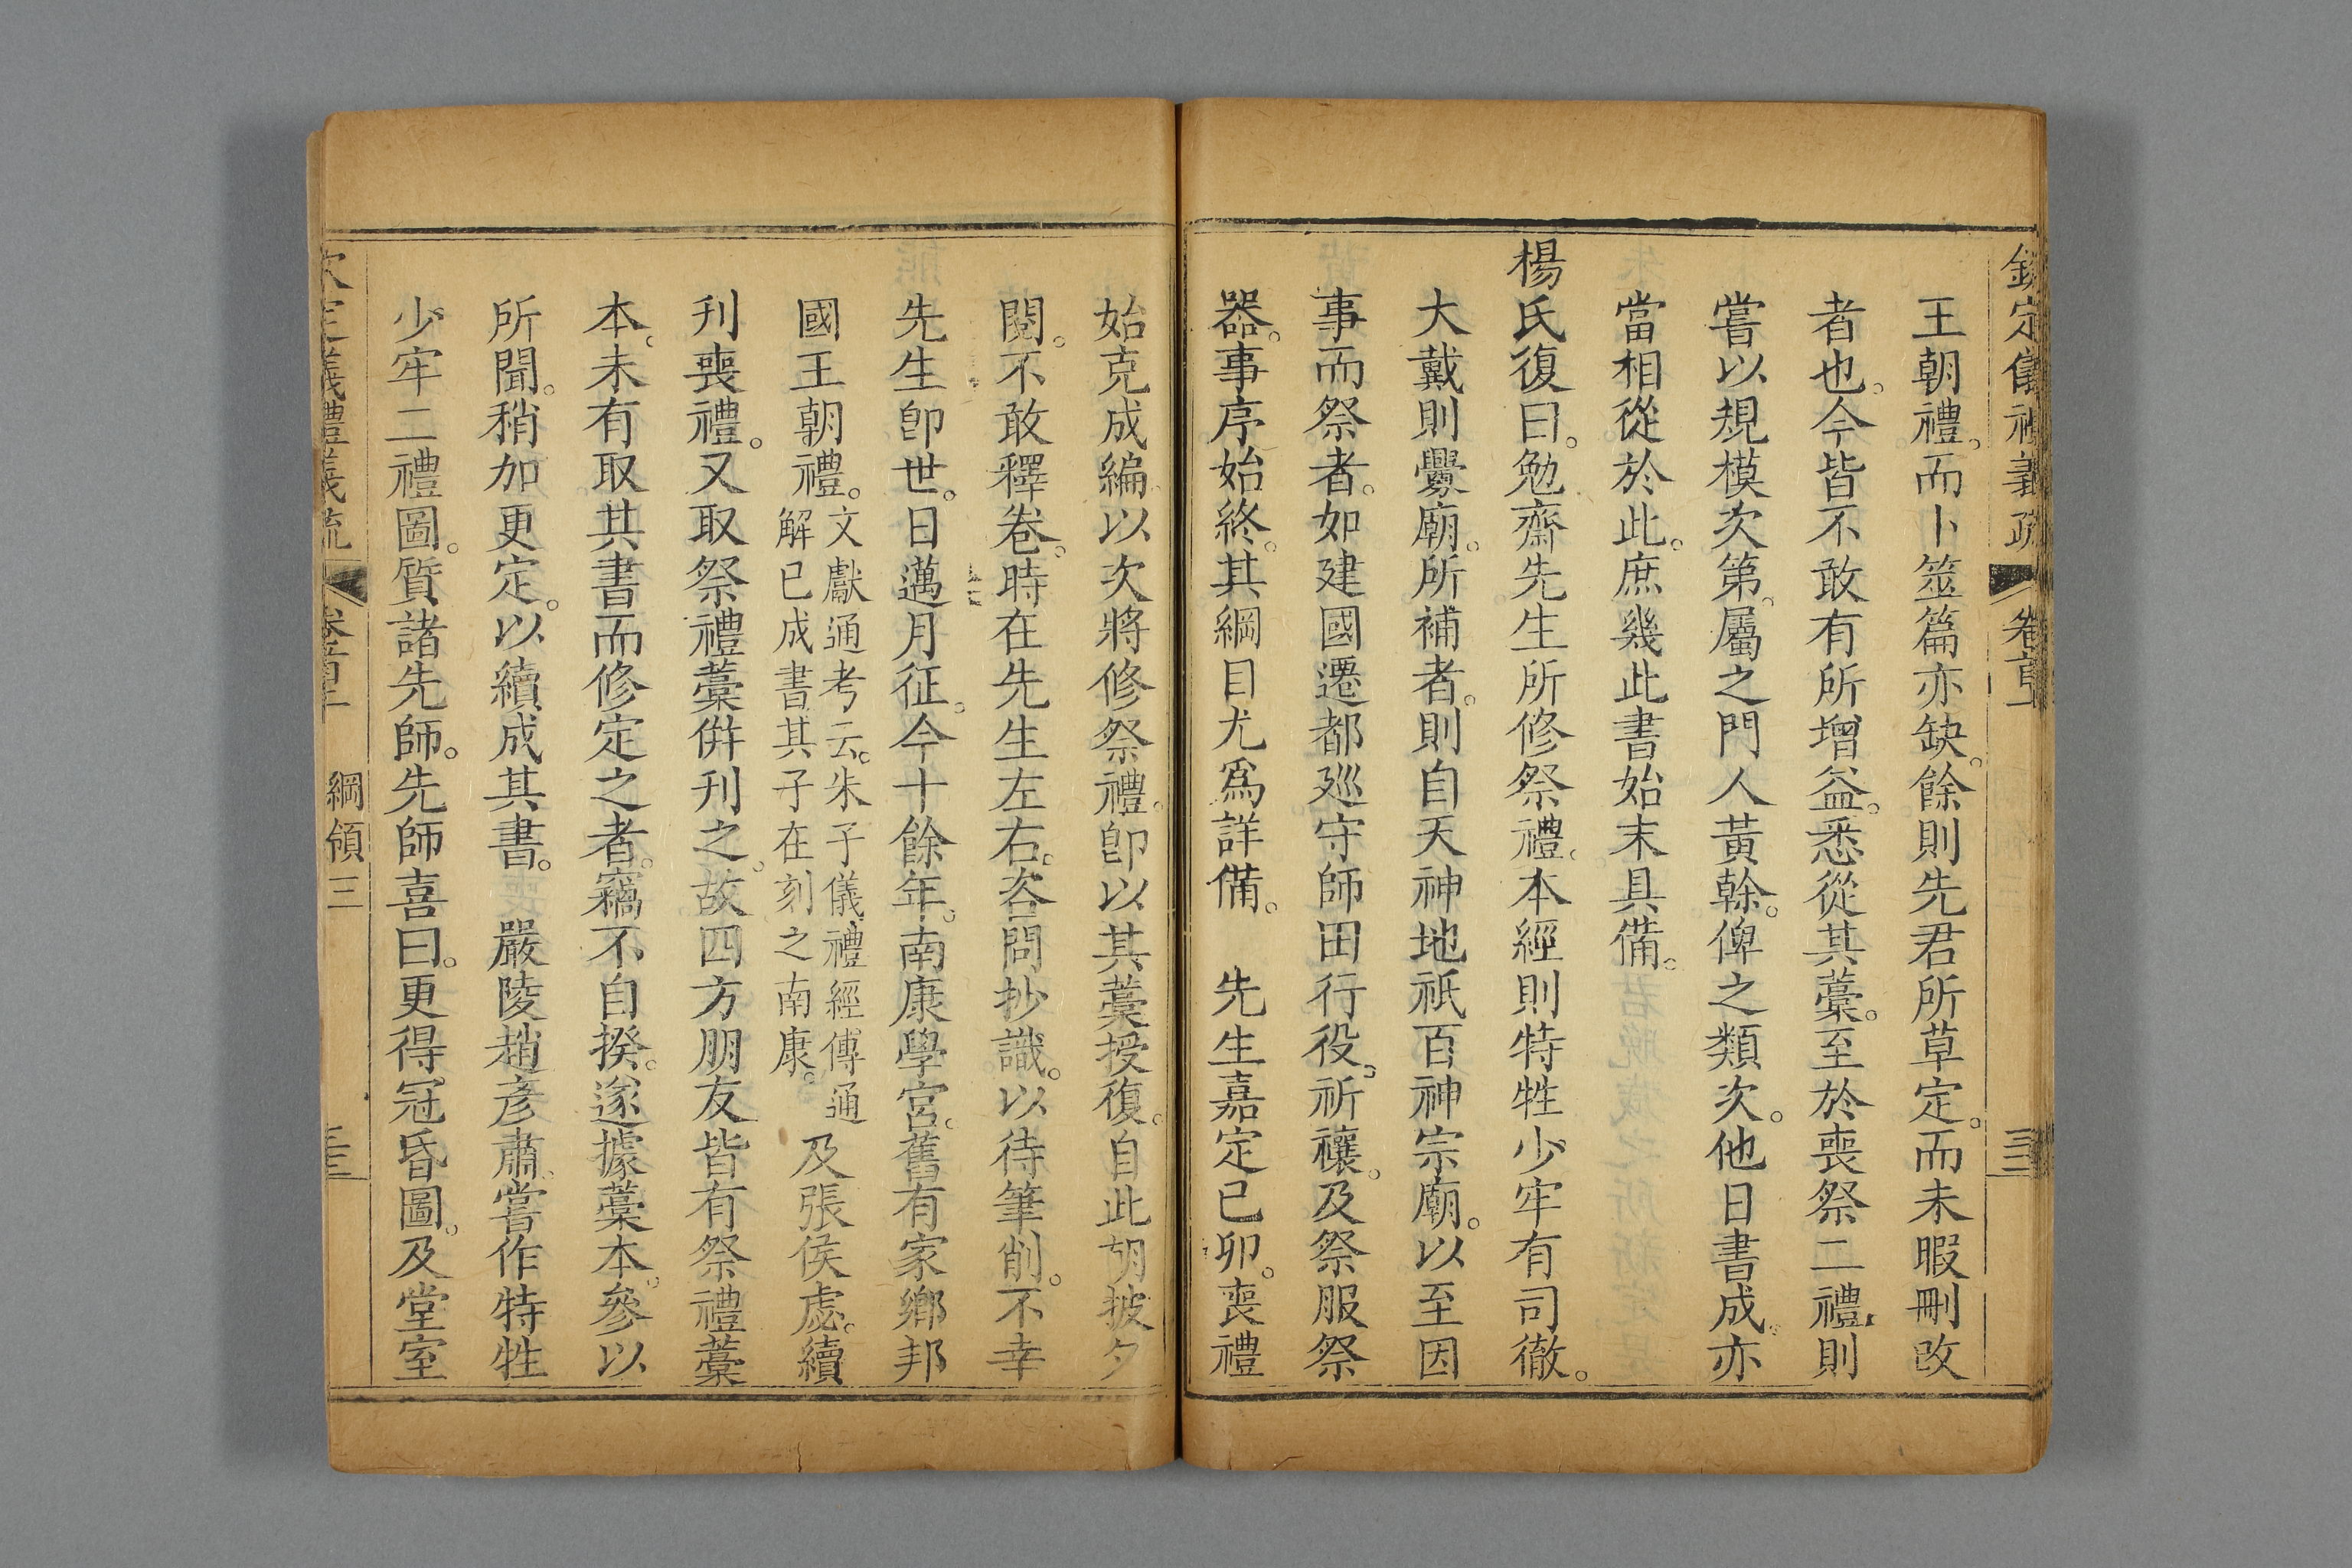 欽定儀禮義疏 卷首上 三三
王朝禮。而卜筮篇亦缺。餘則先君所草定。而未暇刪改
者也。今皆不敢有所增益。悉從其藁。至於喪祭二禮。則
嘗以規模次第。屬之門人黃榦。俾之類次。他日書成。亦
當相從於此。庶幾此書始末具備。
楊氏復曰。勉齋先生所修祭禮。本經則特牲少牢有司徹。
大戴則釁廟。所補者。則自天神地祇百神宗廟。以至因
事而祭者。如建國遷都廵守師田行役。祈禳。及祭服祭
器。事序始終。其綱目尤爲詳備。 先生嘉定己卯。喪禮
始克成編。以次將修祭禮。卽以其藁授復。自此朝披夕
閱。不敢釋卷。時在先生左右。咨問抄識。以待筆削。不幸
先生卽世。日邁月征。今十餘年。南康學宮。舊有家鄉邦
國王朝禮。文獻通考云。朱子儀禮經傳通解已成書其子在刻之南康。及張侯虙。續
刋喪禮。又取祭禮藁併刋之。故四方朋友皆有祭禮藁
本。未有取其書而修定之者。竊不自揆。遂據藁本。參以
所聞。稍加更定。以續成其書。 嚴陵趙彥肅。嘗作特牲
少牢二禮圖。質諸先師。先師喜曰。更得冠昏圖。及堂室
欽定儀禮義疏 卷首上 綱領三 三三